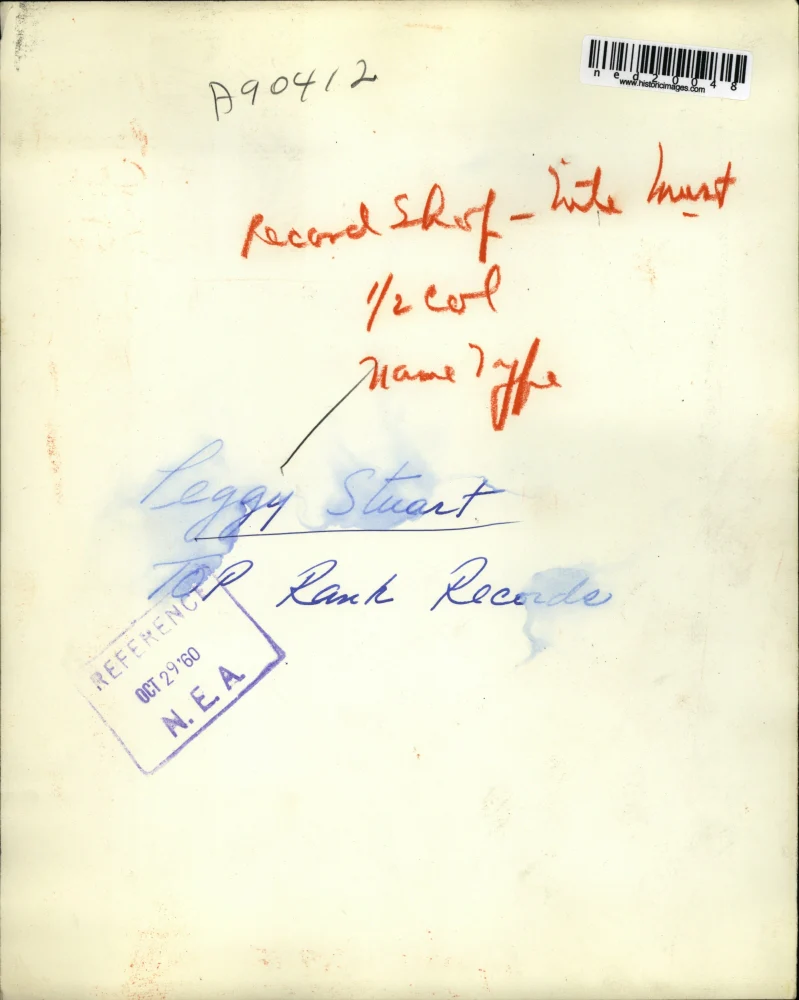 A90412
ned22048
www.historicimages.com
Record Shop - Must
1/2 Col
Name Type
Peggy Stuart
TOP Rank Records
REFERENCE
OCT 29 '60
N. E. A.